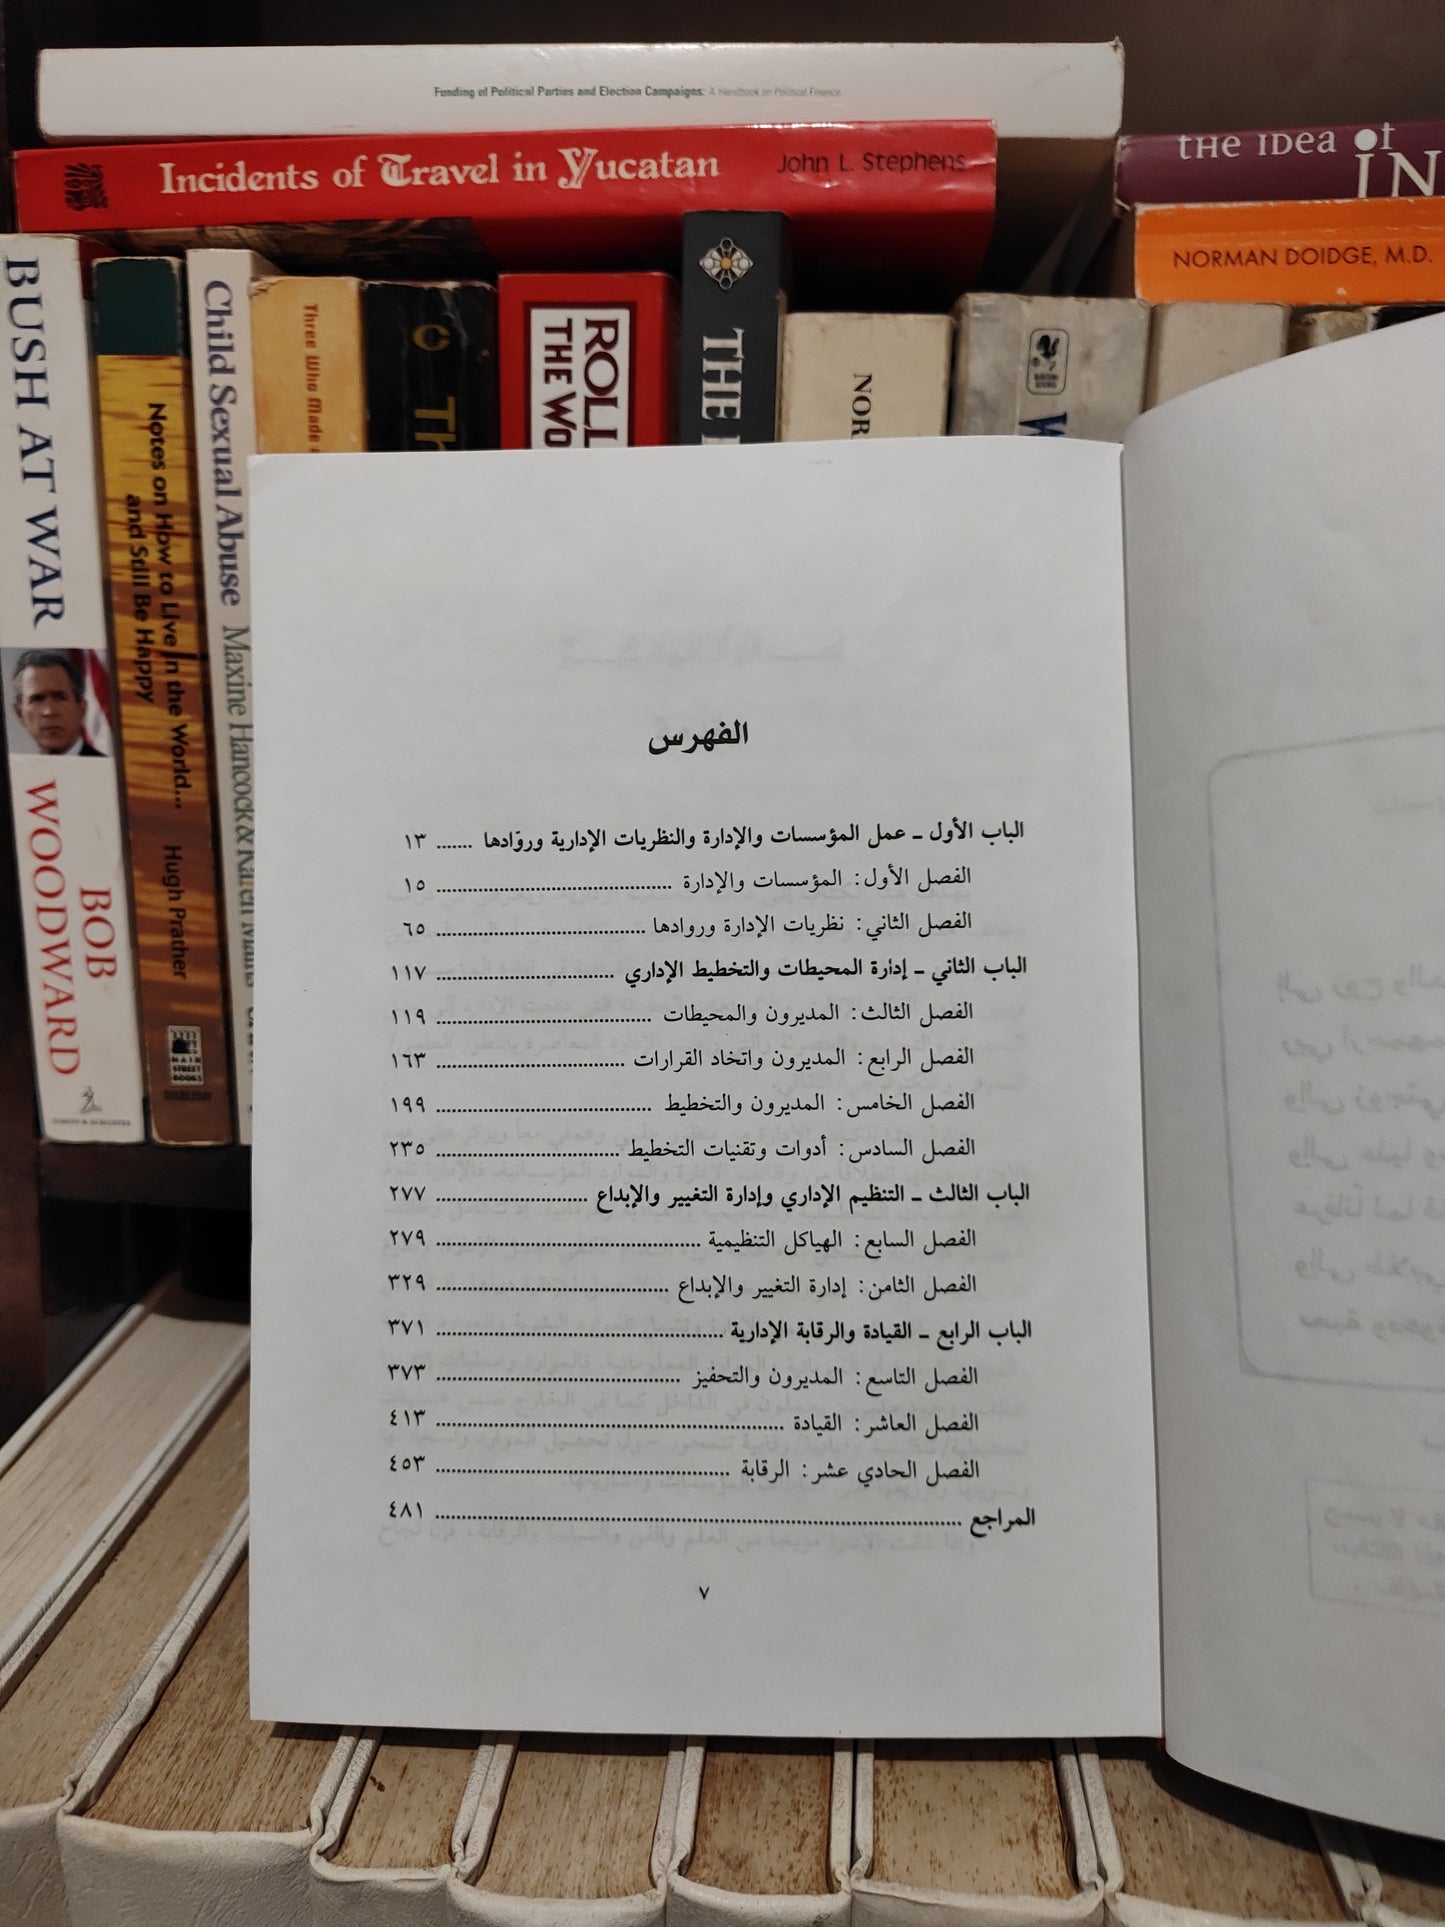 Funding of Political Parties and Election Campaigns: A Handbook on Political Finance
Incidents of Travel in Yucatan John L. Stephens
THE IDEA of
IN
NORMAN DOIDGE, M.D.
BUSH AT WAR
BOB
WOODWARD
SIMON & SCHUSTER
Notes on How to Live in the World...
and Still Be Happy
Hugh Prather
MAIN
STREET
BOOKS
DOUBLEDAY
Child Sexual Abuse Maxine Hancock & Karen
Three Who Made
TH
ROLL
THE WO
THE
NOR
W
الفهرس
الباب الأول ــ عمل المؤسسات والإدارة والنظريات الإدارية وروّادها ....... ١٣
الفصل الأول: المؤسسات والإدارة ............................................ ١٥
الفصل الثاني: نظريات الإدارة وروادها ....................................... ٦٥
الباب الثاني ــ إدارة المحيطات والتخطيط الإداري ................................. ١١٧
الفصل الثالث: المديرون والمحيطات ........................................ ١١٩
الفصل الرابع: المديرون واتخاد القرارات ................................... ١٦٣
الفصل الخامس: المديرون والتخطيط ........................................ ١٩٩
الفصل السادس: أدوات وتقنيات التخطيط .................................. ٢٣٥
الباب الثالث ــ التنظيم الإداري وإدارة التغيير والإبداع ............................ ٢٧٧
الفصل السابع: الهياكل التنظيمية ................................................. ٢٧٩
الفصل الثامن: إدارة التغيير والإبداع ........................................... ٣٢٩
الباب الرابع ــ القيادة والرقابة الإدارية ..................................................... ٣٧١
الفصل التاسع: المديرون والتحفيز ............................................. ٣٧٣
الفصل العاشر: القيادة ................................................................ ٤١٣
الفصل الحادي عشر: الرقابة ...................................................... ٤٥٣
المراجع .................................................................................................. ٤٨١
٧